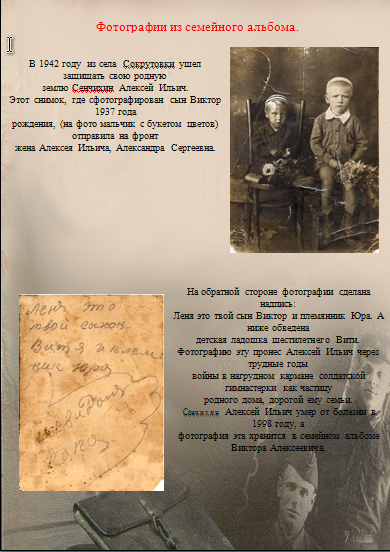 Фотографии из семейного альбома.
В 1942 году из села Сокрутовки ушел
защищать свою родную
землю Сенчихин Алексей Ильич.
Этот снимок, где сфотографирован сын Виктор
1937 года
рождения, (на фото мальчик с букетом цветов)
отправила на фронт
жена Алексея Ильича, Александра Сергеевна.
На обратной стороне фотографии сделана
надпись:
Леня это твой сын Виктор и племянник Юра. А
ниже обведена
детская ладошка шестилетнего Вити.
Фотографию эту пронес Алексей Ильич через
трудные годы
войны в нагрудном кармане солдатской
гимнастерки как частицу
родного дома, дорогой ему семьи.
Сенчихин Алексей Ильич умер от болезни в
1998 году, а
фотография эта хранится в семейном альбоме
Виктора Алексеевича.
Леня это
твой сынок
Витя и племя
ник юра